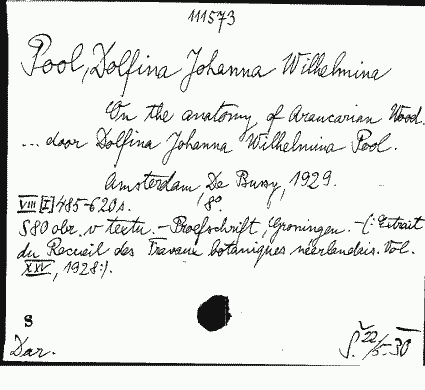 111573
Pool, Dolfina Johanna Wilhelmina
On the anatomy of Araucarian Wood.
... door Dolfina Johanna Wilhelmina Pool.
Amsterdam De Bussy, 1929.
VIII [I] 485-620 s. 8º.
580 obr. v textu. - Proefschrift, Groningen. - (: Extrait
du Recueil des Travaux botaniques néerlandais. Vol.
XXV, 1928:).
S
Dar. Š. 22/5-30